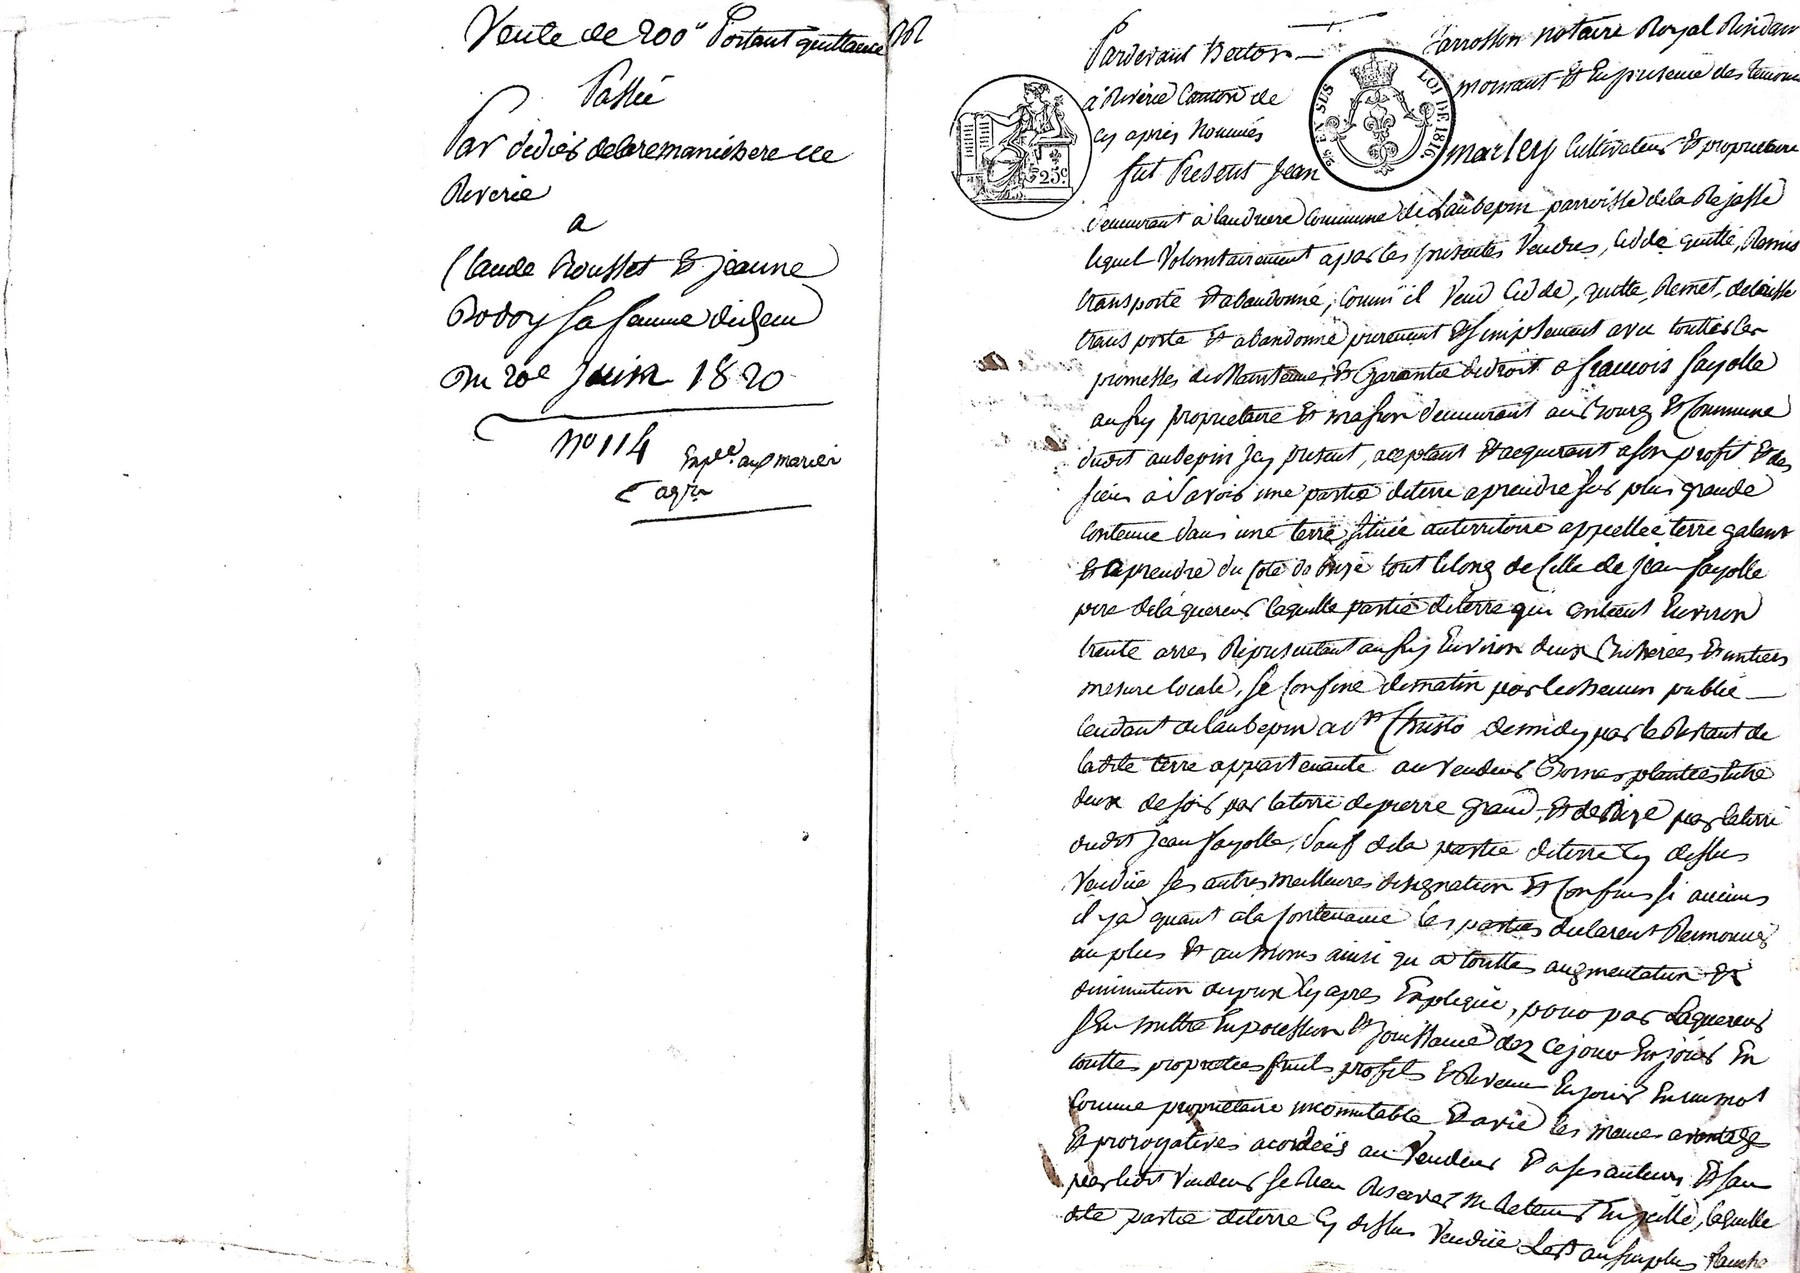 Vente de 200# Portant quittance 202
Passée
Par
Riverie
a
Claude Rousset et jeanne
sa famme du
Du 20e Juin 1820
No 114
Pardevant
Notaire Royal Residant
à Riverie Canton de
mornant Et En presence des temoins
Cy apres Nommés
fut Present Jean
marley Cultivateur Et proprietaire
25 EN SUS
LOI DE 1816
25c
demeurant à Commune de Laubepin parroisse de la Rajasse
lequel Volontairement a par les presentes Vendus, Cédé quitté, Remis
transporté Et abandonné, Comm'il Vend Cede, quitte, Remet, delaisse
transporte Et abandonne purement Et simplement avec touttes les
promesses de Maintenue, Et Garantie de droit a francois fayolle
aussy proprietaire Et masson demeurant au Bourg Et Commune
dudit aubepin Jcy present, aceptant Et acquerant a son profit Et des
siens à Savoir une partie de terre a prendre sur plus grande
Contenue dans une terre située au territoire appellée terre
Et a prendre du Coté de Bize tout le long de Celle de jean fayolle
pere de láquereur laquelle partie de terre qui contient Environ
trente arres Representant aussy Environ deux Bicherées
mesure locale, se Confine de matin par le chemin public
tendant de laubepin a St Christo de midy par le Restant de
ladite terre appartenante au Vendeur Bornes plantées Entre
deux de soir par la terre de pierre grand, Et de Bize par la terre
dudit jean fayolle, Sauf de la partie de terre Cy dessus
Vendüe ses autres meilleures designation Et Confins si aucuns
il y a quant à la Contenance les parties declarent Renoncés
au plus Et au Moins ainsi qu'a touttes augmentation Et
diminution du prix Cy apres Expliqué, pour par Laquereur
s'En mettre En possession Et jouissance dez ce jour En jouir En
touttes proprietés fruits profits Et Revenu En jouir En un mot
Comme proprietaire incommutable Et avec les memes avantage
Et prorogatives acordées au Vendeur Et a ses auteurs Et sans
par ledit Vendeur se Rien Reserver Ni Retenir En Jcelle, laquelle
dite partie de terre Cy dessus Vendüe Lest au surplus franche